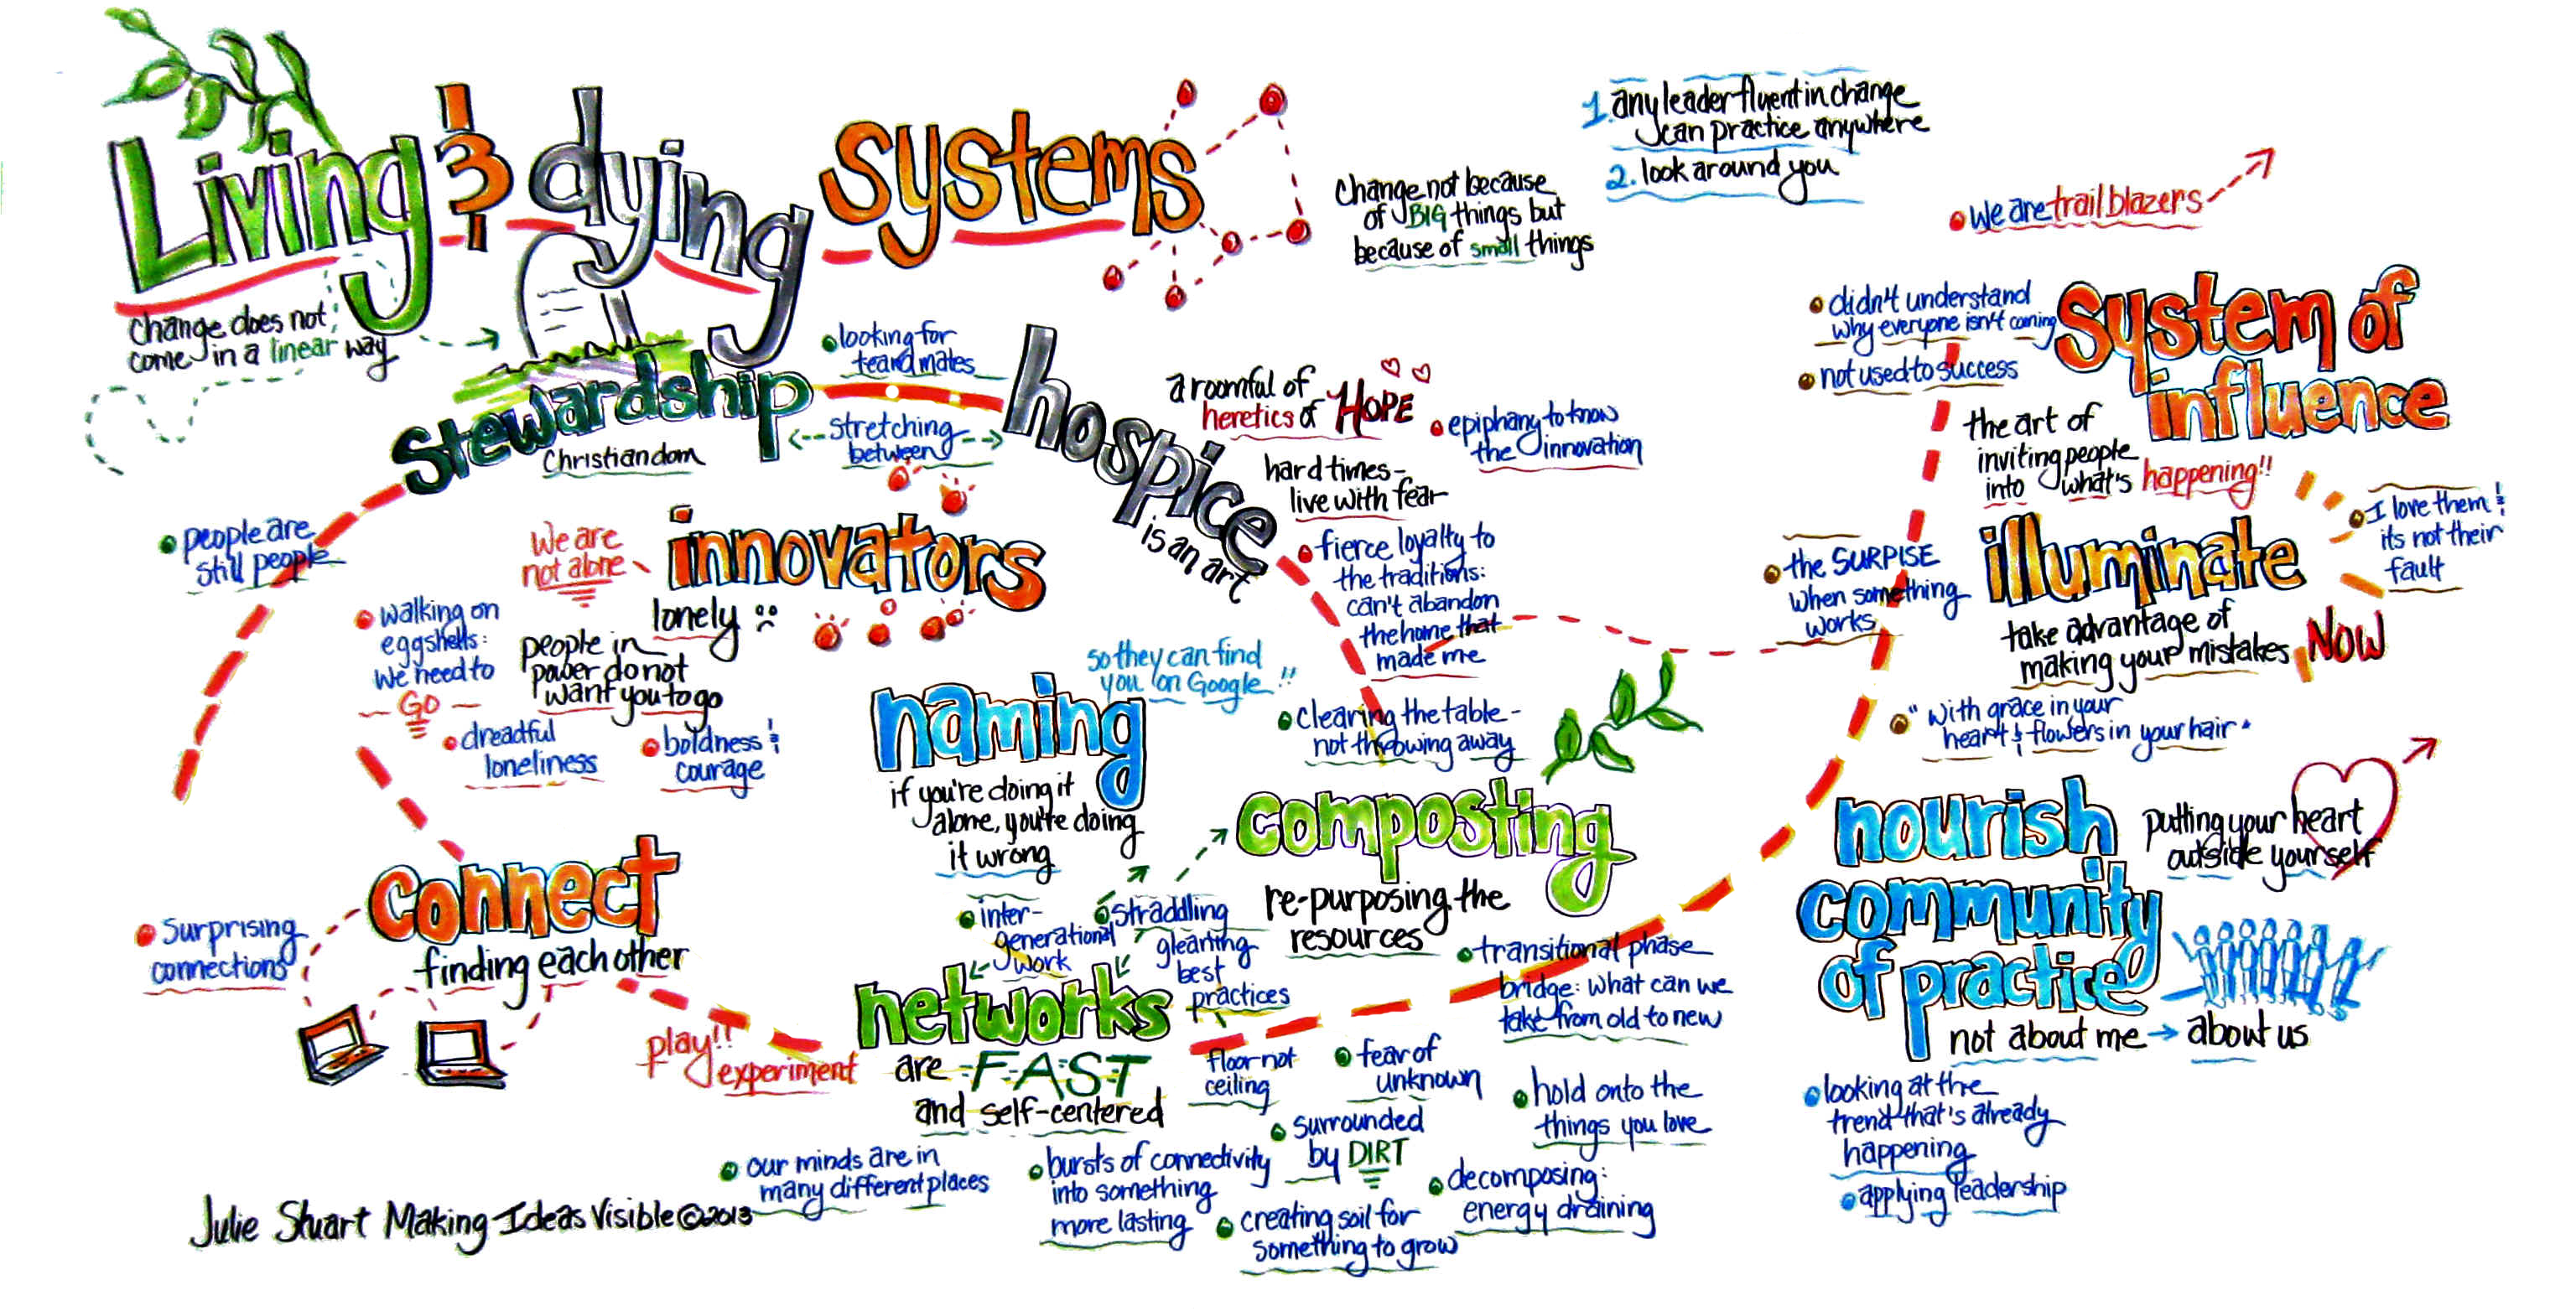 Living & dying systems
change does not
come in a linear way
change not because
of BIG things but
because of small things
1. any leader fluent in change
can practice anywhere
2. look around you
we are trail blazers
stewardship
Christiandom
people are
still people
looking for
team mates
<--stretching-->
between
hospice
is an art
a roomful of
heretics of HOPE
epiphany to know
the innovation
hard times-
live with fear
fierce loyalty to
the traditions:
can't abandon
the home that
made me
clearing the table-
not throwing away
innovators
We are
not alone
lonely
people in
power do not
want you to go
walking on
eggshells:
we need to
GO
dreadful
loneliness
boldness &
courage
connect
finding each other
surprising
connections
play!!
experiment
naming
so they can find
you on Google!!
if you're doing it
alone, you're doing
it wrong
inter-
generational
work
straddling
best
practices
networks
are FAST
and self-centered
our minds are in
many different places
bursts of connectivity
into something
more lasting
composting
re-purposing the
resources
transitional phase
bridge: what can we
take from old to new
floor not
ceiling
fear of
unknown
surrounded
by DIRT
hold onto the
things you love
decomposing:
energy draining
creating soil for
something to grow
System of
influence
didn't understand
why everyone isn't coming
not used to success
the art of
inviting people
into what's happening!!
illuminate
I love them &
its not their
fault
the SURPISE
when something
works
take advantage of
making your mistakes NOW
"with grace in your
heart & flowers in your hair"
nourish
community
of practice
putting your heart
outside yourself
not about me → about us
looking at the
trend that's already
happening
applying leadership
Julie Stuart Making Ideas Visible ©2013